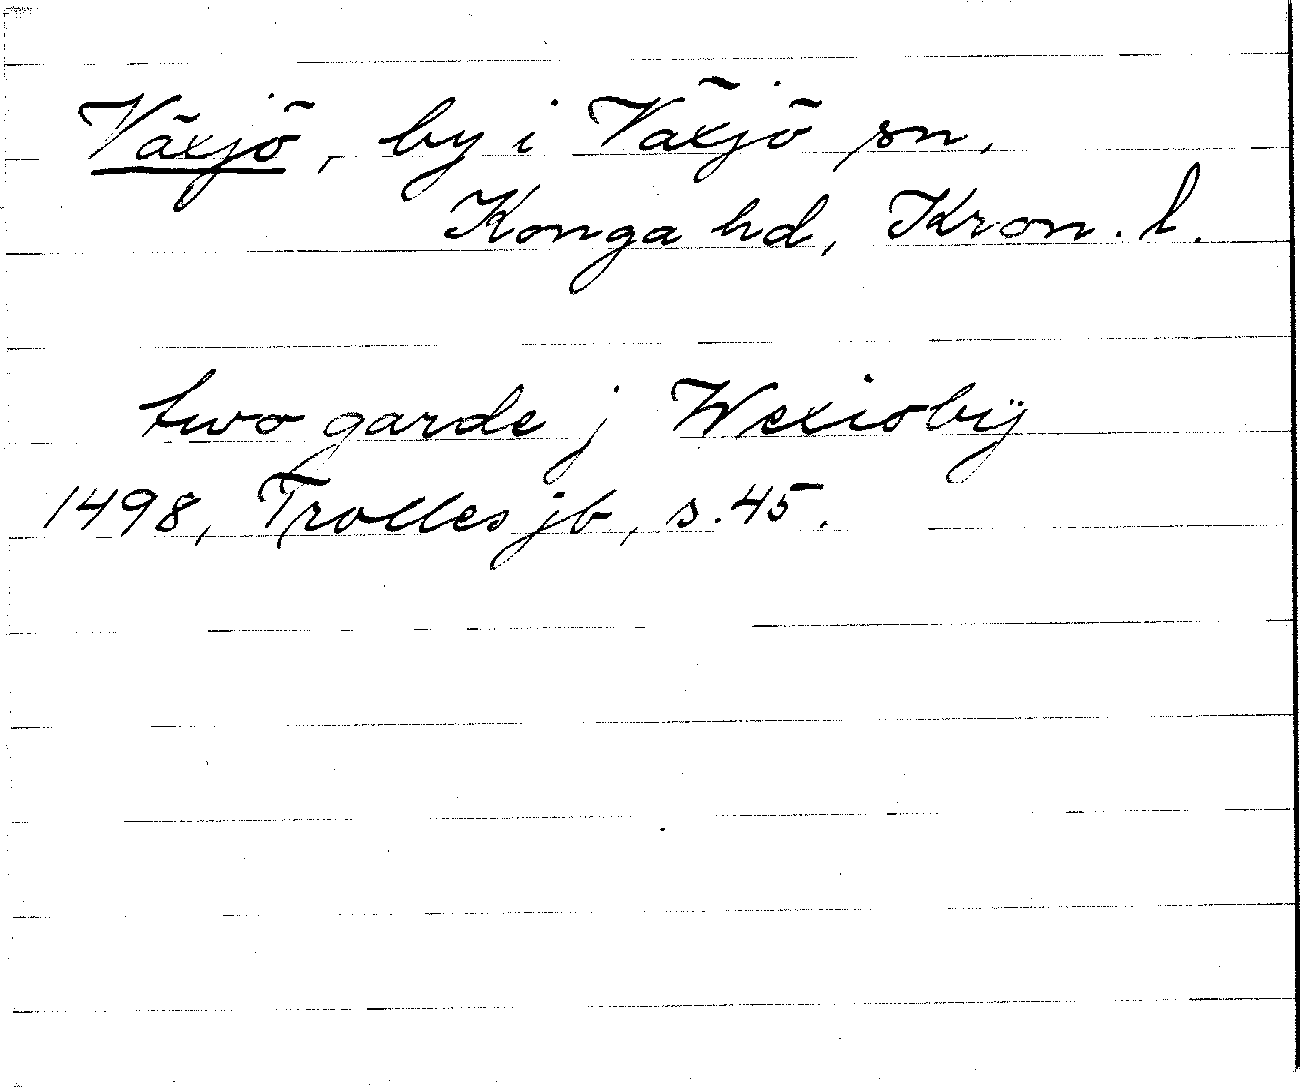 Växjö, by i Växjö sn,
Konga hd, Kron. l.
two garde j Wexiobÿ
1498, Trolles jb, s. 45.